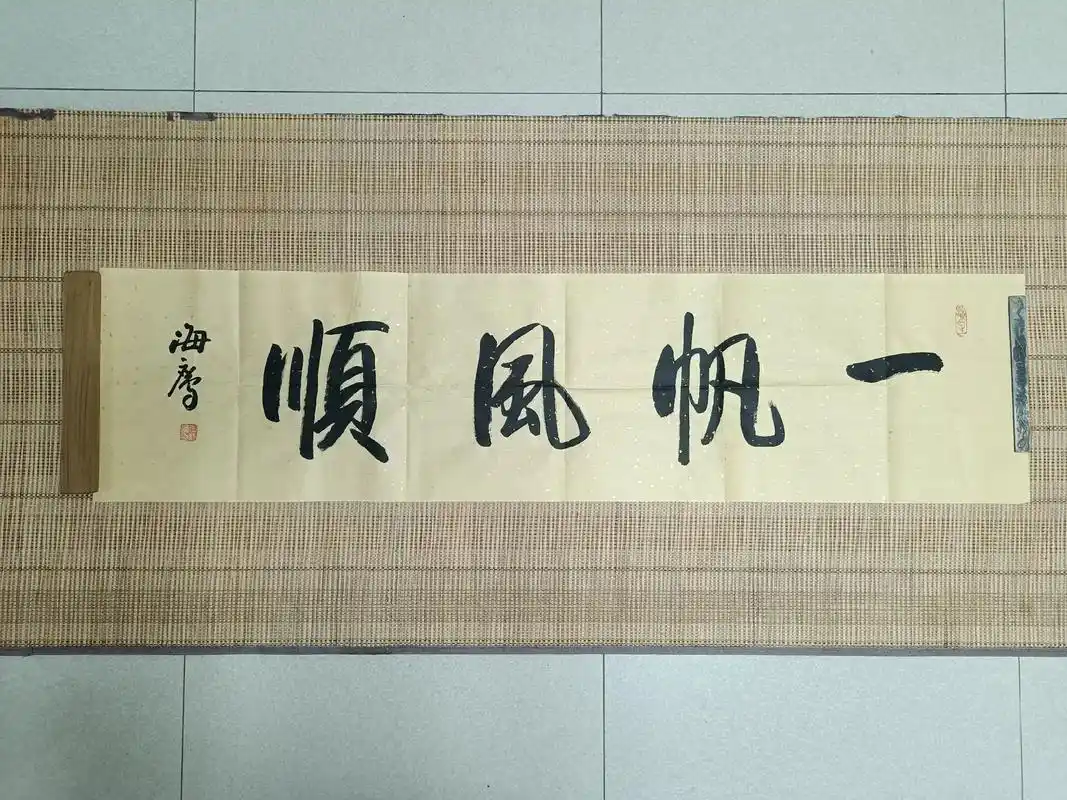 一帆風順
海鹰